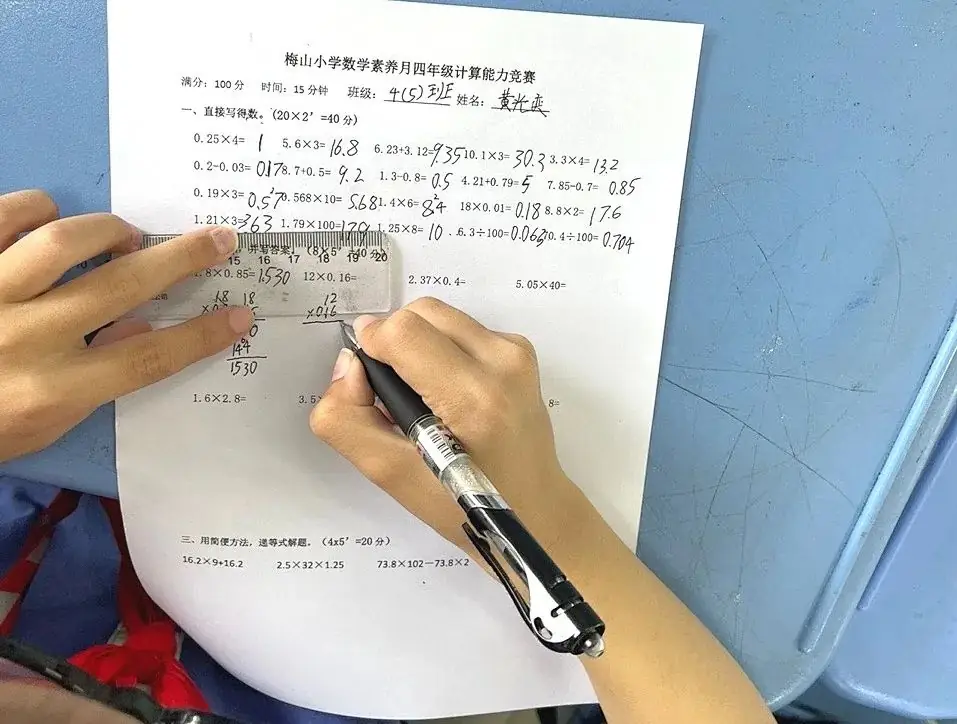 梅山小学数学素养月四年级计算能力竞赛
满分：100分 时间：15分钟 班级：4(5)班 姓名：黄光奕
一、直接写得数。(20×2’=40分)
0.25×4=1 5.6×3=16.8 6.23+3.12=9.35 10.1×3=30.3 3.3×4=13.2
0.2-0.03=0.17 8.7+0.5=9.2 1.3-0.8=0.5 4.21+0.79=5 7.85-0.7=0.85
0.19×3=0.57 0.568×10=5.68 1.4×6=8.4 18×0.01=0.18 8.8×2=17.6
1.21×3=363 1.79×100=179 1.25×8=10 6.3÷100=0.063 70.4÷100=0.704
并写答案。(8×5’=40分)
15 16 17 18 19 20
1.8×0.85=1.530 12×0.16= 2.37×0.4= 5.05×40=
18 18 12
×0.16
144
1530
1.6×2.8= 3.5× 8=
三、用简便方法，递等式解题。(4x5’=20分)
16.2×9+16.2 2.5×32×1.25 73.8×102－73.8×2